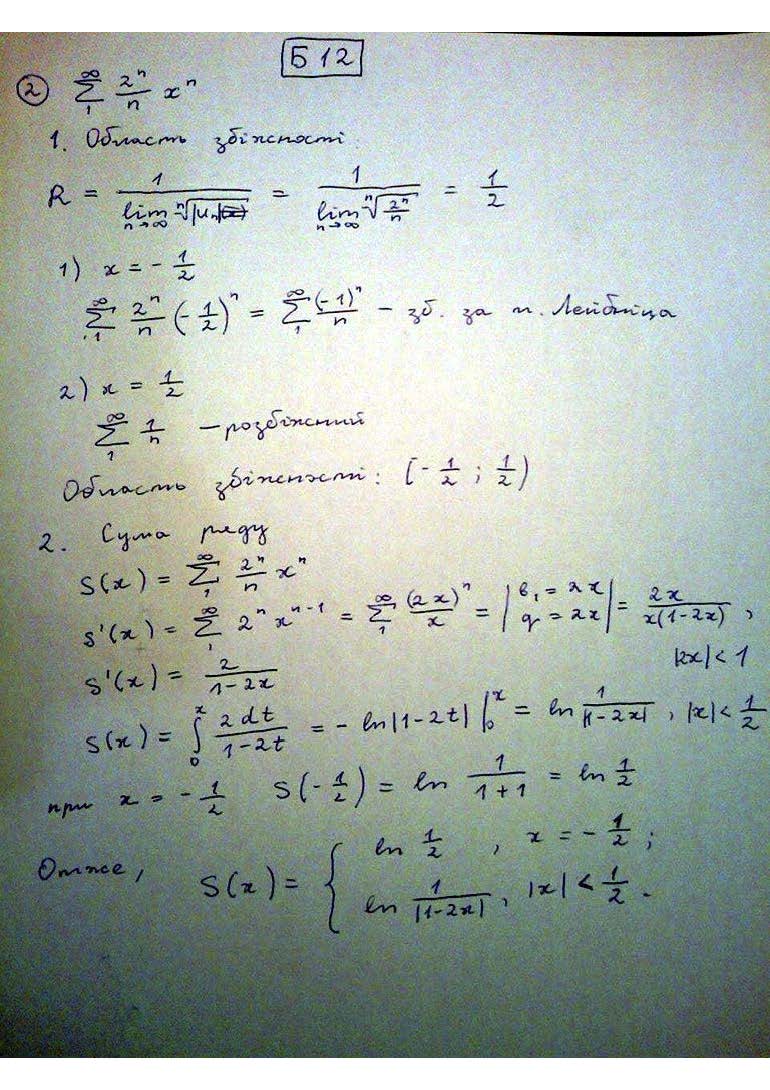 Б 12
② ∑₁^∞ 2ⁿ/n xⁿ
1. Область збіжності:
R = 1/(lim_{n→∞} ⁿ√|uₙ|) = 1/(lim_{n→∞} ⁿ√(2ⁿ/n)) = 1/2
1) x = -1/2
∑₁^∞ 2ⁿ/n (-1/2)ⁿ = ∑₁^∞ (-1)ⁿ/n - зб. за т. Лейбніца
2) x = 1/2
∑₁^∞ 1/n - розбіжний
Область збіжності: [-1/2 ; 1/2)
2. Сума ряду
S(x) = ∑₁^∞ 2ⁿ/n xⁿ
S'(x) = ∑₁^∞ 2ⁿ xⁿ⁻¹ = ∑₁^∞ (2x)ⁿ/x = | b₁ = 2x q = 2x | = 2x/(x(1-2x)) ,
S'(x) = 2/(1-2x) |2x| < 1
S(x) = ∫₀ˣ 2dt/(1-2t) = - ln|1-2t| |₀ˣ = ln 1/|1-2x| , |x| < 1/2
при x = -1/2 S(-1/2) = ln 1/(1+1) = ln 1/2
Отже, S(x) = { ln 1/2 , x = -1/2 ;
ln 1/|1-2x| , |x| < 1/2 .